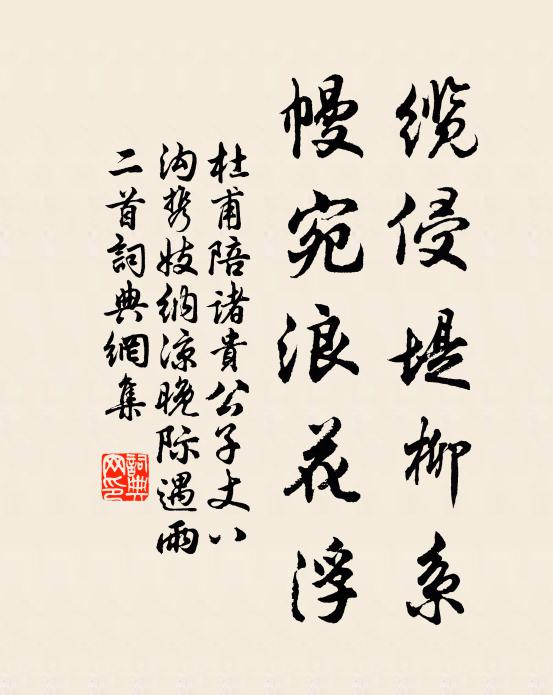 缆侵堤柳系
幔宛浪花浮
杜甫陪诸貴公子丈八
沟携妓纳凉晚际遇雨
二首詞典網集
詞典网印